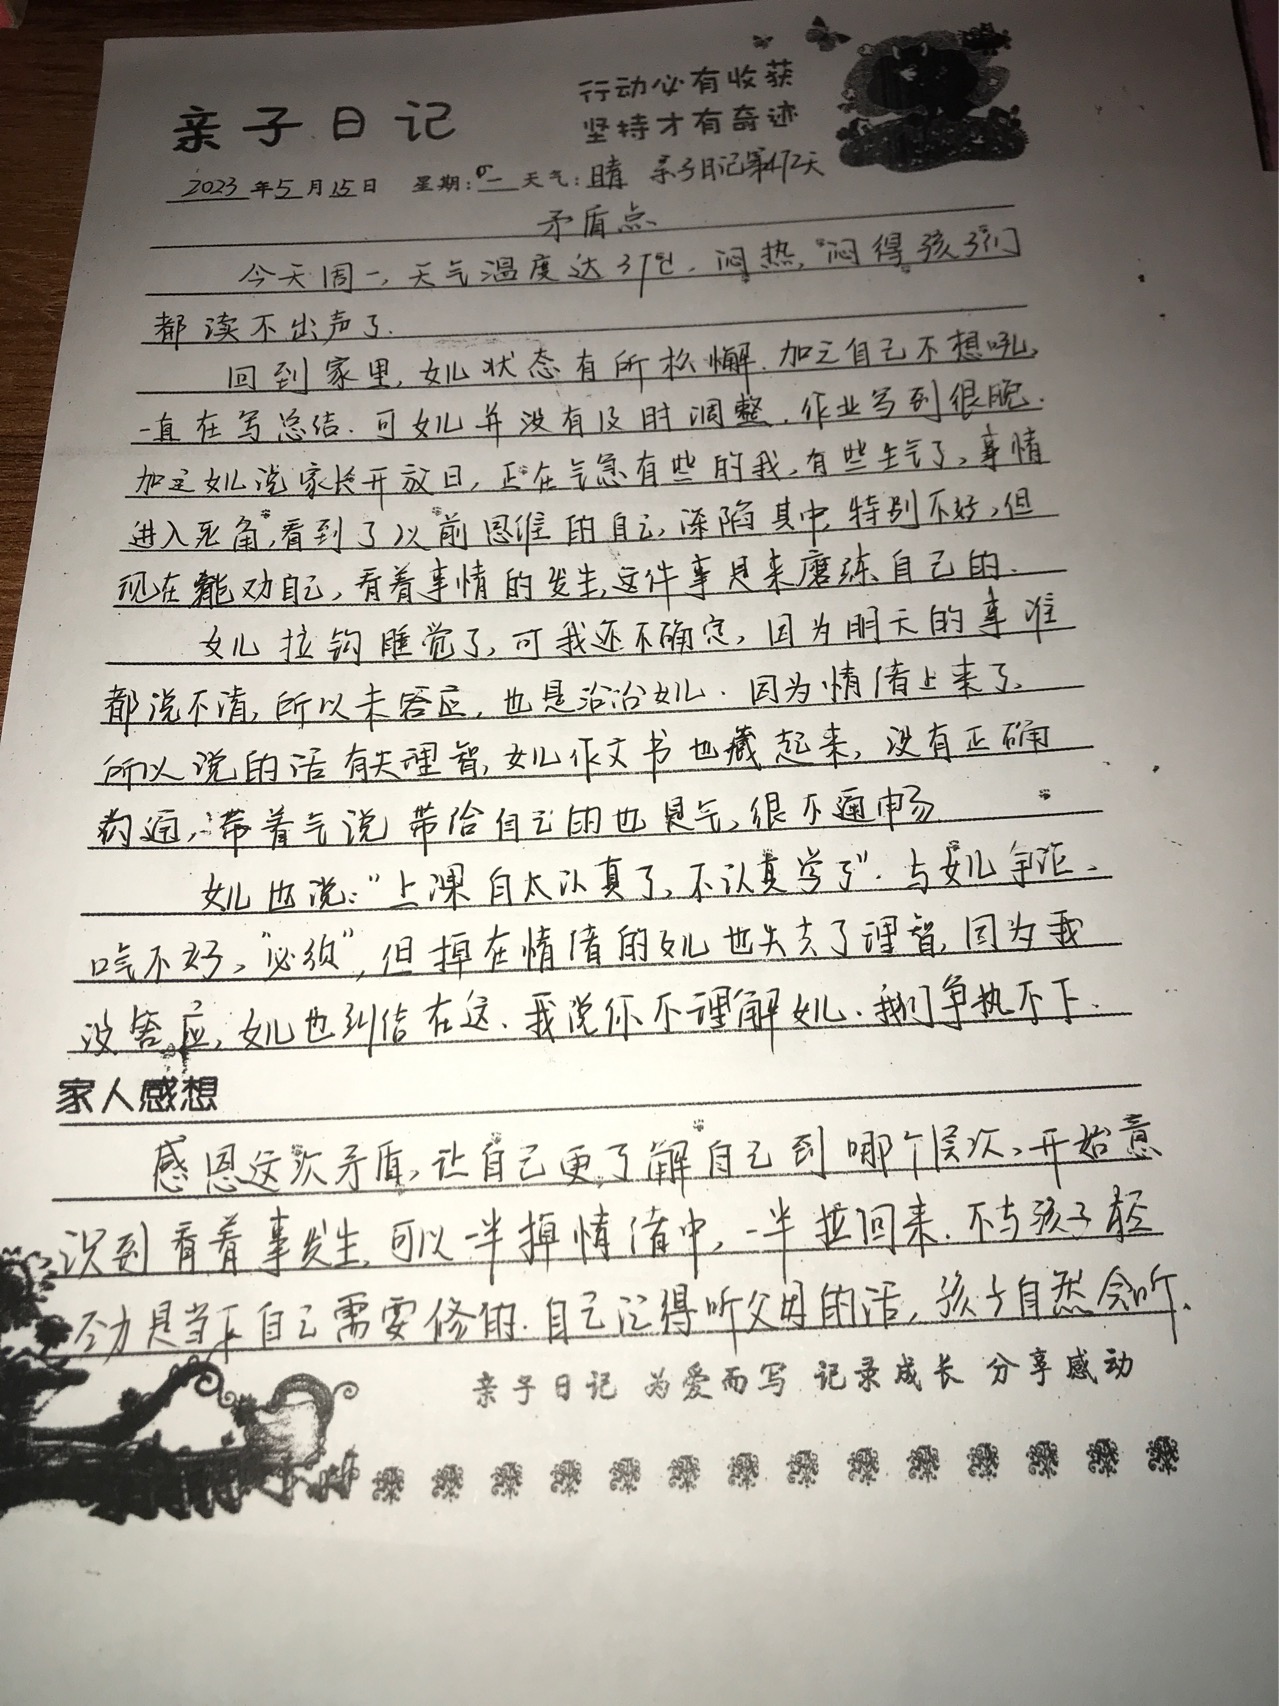 行动必有收获
亲子日记
坚持才有奇迹
2023年5月15日 星期:一 天气:晴 亲子日记第472天
矛盾点
今天周一,天气温度达37℃,闷热,闷得孩子们
都读不出声了.
回到家里,女儿状态有所松懈.加之自己不想吼,
一直在写总结.可女儿并没有及时调整,作业写到很晚.
加之女儿说家长开放日,正在气急有些的我,有些生气了,事情
进入死角,看到了以前思维的自己,深陷其中,特别不好,但
现在能劝自己,看着事情的发生,这件事是来磨练自己的.
女儿拉钩睡觉了,可我还不确定,因为明天的事谁
都说不清,所以未答应,也是治治女儿.因为情绪上来了,
所以说的话有失理智,女儿作文书也藏起来,没有正确
沟通,带着气说带给自己的也是气,很不通畅.
女儿也说:“上课自太认真了,不认真学了”.与女儿争论,
口气不好,“必须”,但掉在情绪的女儿也失去了理智,因为我
没答应,女儿也纠结在这,我说你不理解女儿.我们争执不下.
家人感想
感恩这次矛盾,让自己更了解自己到哪个层次,开始意
识到看着事发生,可以一半掉情绪中,一半拉回来.不与孩子较
劲是当下自己需要修的.自己记得听父母的话,孩子自然会听.
亲子日记 为爱而写 记录成长 分享感动